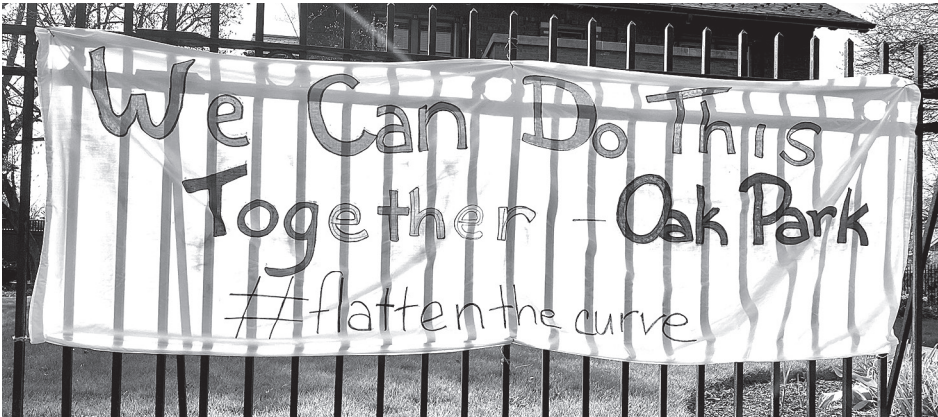 We Can Do This
Together - Oak Park
#flattenthecurve